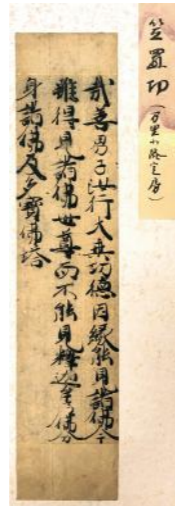 笠置切（万里小路宣房）
哉善男子汝行大乗功徳因縁能見諸佛今
雖得見諸佛世尊而不能見釋迦牟尼佛分
身諸佛及多寶佛塔